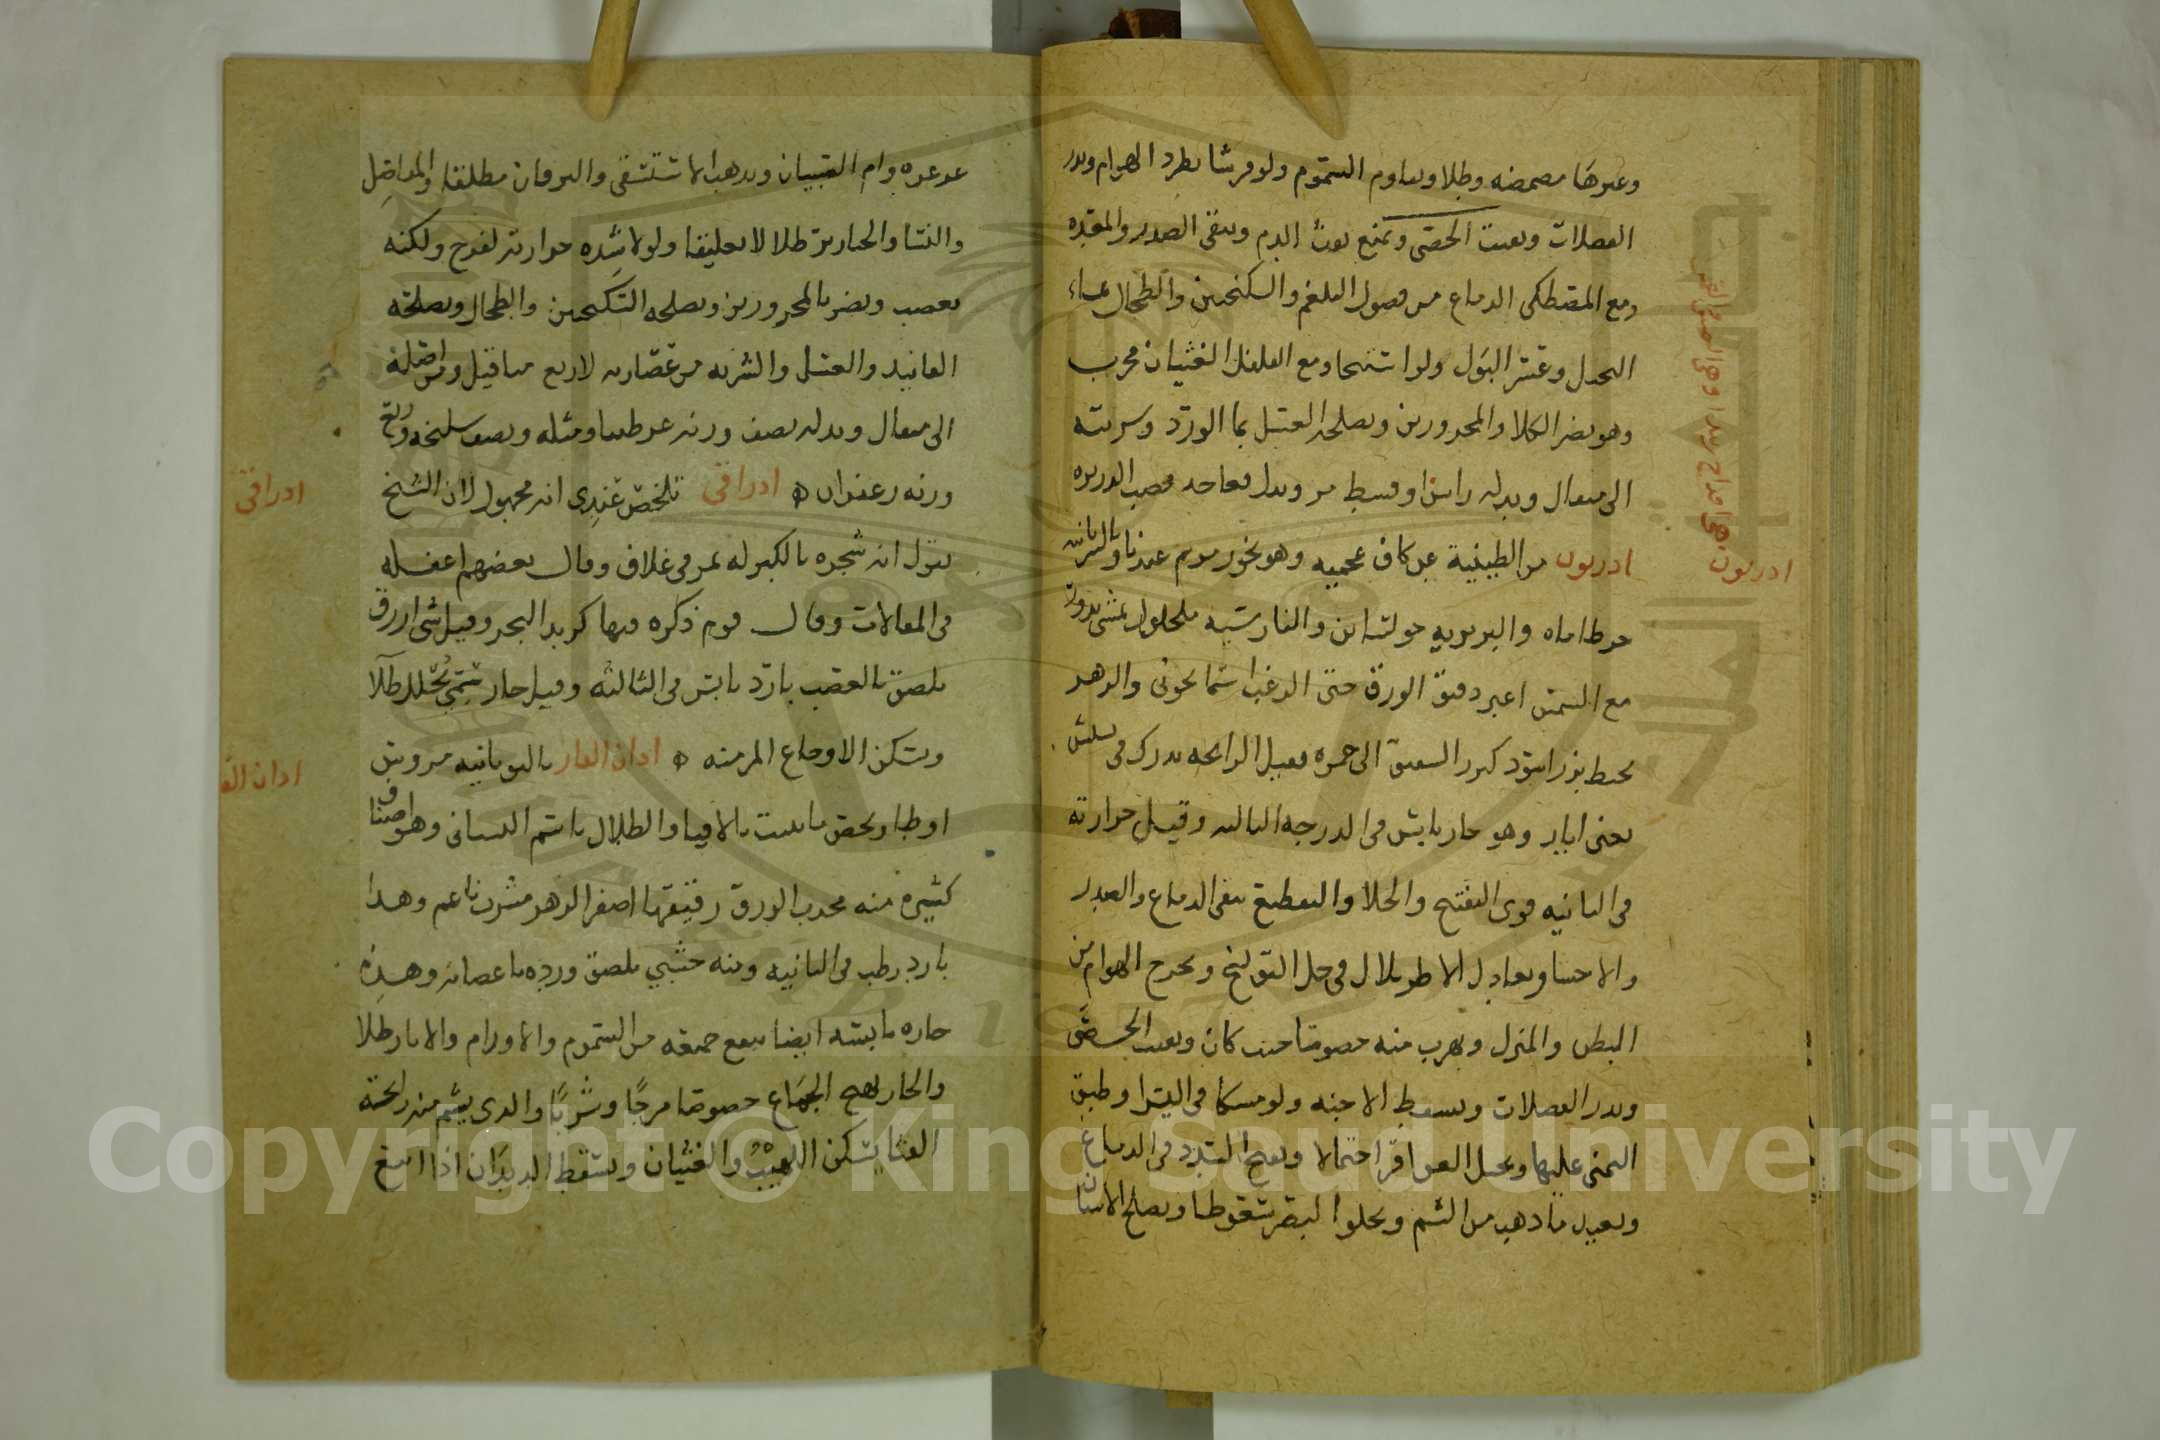 وغيرها مضمضه وطلا ويقاوم السموم ولو فرشا يطرد الهوام ويدر
الفضلات ويفتت الحصى ويمنع نفث الدم وينقى الصدر والمعده
ومع المصطكى الدماغ من فضول البلغم والسكنجبين والطحال بماء
النجيل وعسر البول ولو استنجا ومع الفلفل الغثيان مجرب
وهو يضر الكلا والمحرورين ويصلحه العسل بما الورد وشربته
الى مثقال وبدله راسن او قسط مر وبدل فقاحه قصب الذريره
ادريون من الطبيبة عن كاف عجميه وهو بخور مريم عندنا وباليونانيه
مع الشمس اغبر دقيق الورق حتى الزغب اسمانجونى والزهر
يحيط ببزر اسود كريه السهق الى حمره ثقيل الرائحه يدرك فى
يعنى ايار وهو حار يابس فى الدرجه الثالثه وقيل حرارته
فى الثانيه قوى التفتيح والجلا والتقطيع ينقى الدماغ والصدر
والاحشا ويعادل الاطريلال فى حل القولنج ويخرج الهوام من
البطن والمنزل ويهرب منه خصوصا حيث كان ويفتت الحصى
ويدر الفضلات ويسقط الاجنه ولو مسكا فى اليسرا وطبق
اليمنى عليها ويحمل العواقر احتمالا ويفتح السدد فى الدماغ
ويعيد ما ذهب من الشم ويجلوا البصر سعوطا ويصلح الاسنان
ادريون
غرغره وام الصبيان ويذهب الاستسقى واليرقان مطلقا والمفاصل
والنسا والخنازير طلا لا تعليقا ولولا شده حرارته لفرح ولكنه
يعصب ويضر بالمحرورين ويصلحه السكنجبين والطحال ويصلحه
الفانيد والعسل والشربه من عصارته لاربع مثاقيل ومن اصله
الى مثقال وبدله نصف وزنه عرطنيثا ومثله ونصف سليخه وربع
وزنه زعفران ه ادراقى تلخص عندى انه مجهول لان الشيخ
يقول انه شجره بالكبر له ثمر فى غلاف وقال بعضهم اغفله
فى المقالات وقال قوم ذكره فيها كزبد البحر وقيل شى ازرق
يلصق بالقصب بارد يابس فى الثالثه وقيل حار سمى يحلل طلا
ويسكن الاوجاع المزمنه ه اذان الفار باليونانيه مروش
اوطا ويخص ما ينبت بالافيا والظلال باسم البستانى وهو اصناف
كثيره منه محدب الورق رقيقها اصفر الزهر مشرف ناعم وهذا
بارد رطب فى الثانيه ومنه خشبي يلصق ورده باغصانه وهذه
حاره يابسه ايضا ينفع جميعه من السموم والاورام والاثار طلا
والحار يهيج الجماع خصوصا مرخا وشربا والذى يشم منه رائحة
القثا يسكن اللهيب والغثيان ويسقط الديدان اذا اتبع
ادراقى
اذان الفا
Copyright © King Saud University